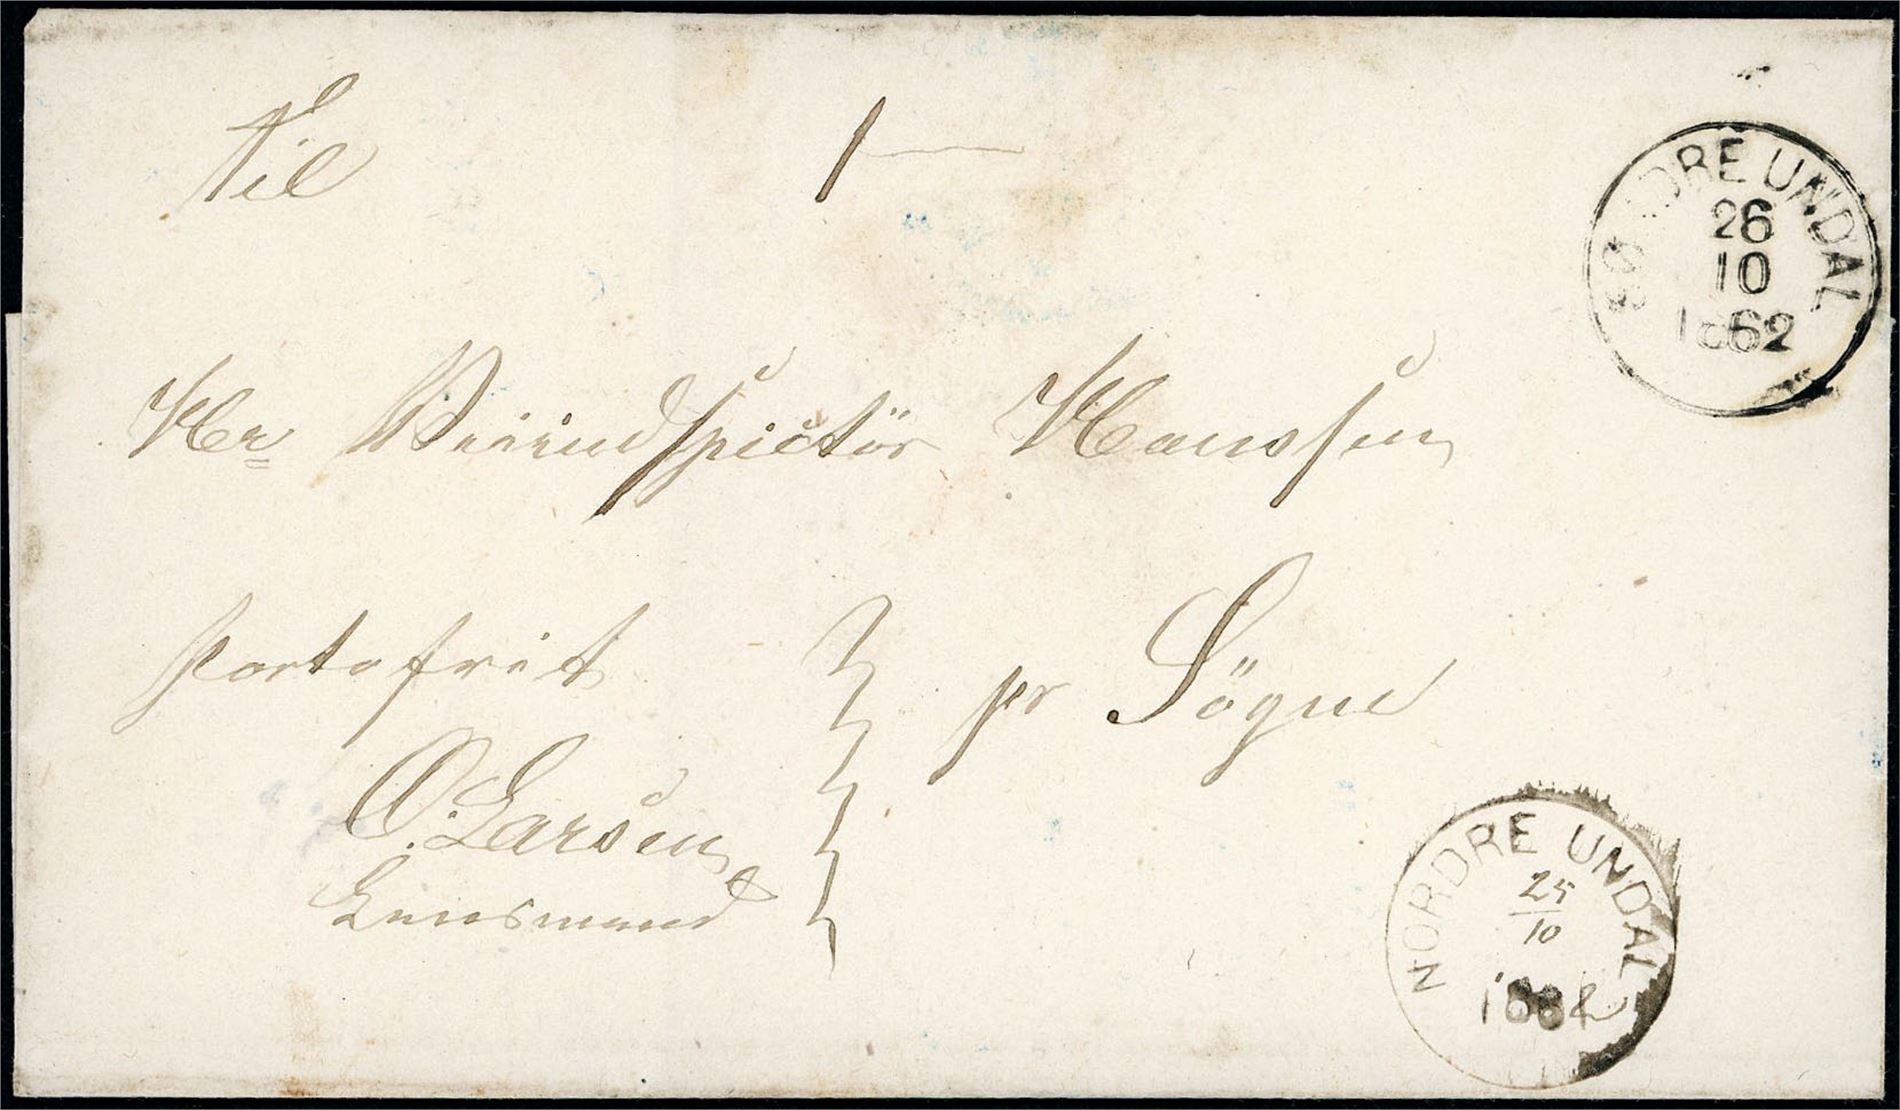 Til 1
SØNDRE UNDAL
26
10
1862
Hr Veiindspictör Hanssen
Portofrit
pr Sögne
O. Larsen
Lensmand
NORDRE UNDAL
25/10
1862